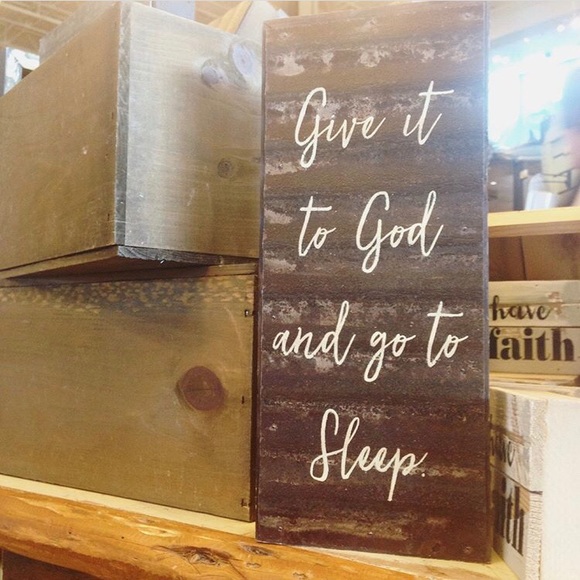 Give it
to God
and go to
Sleep.
have
faith